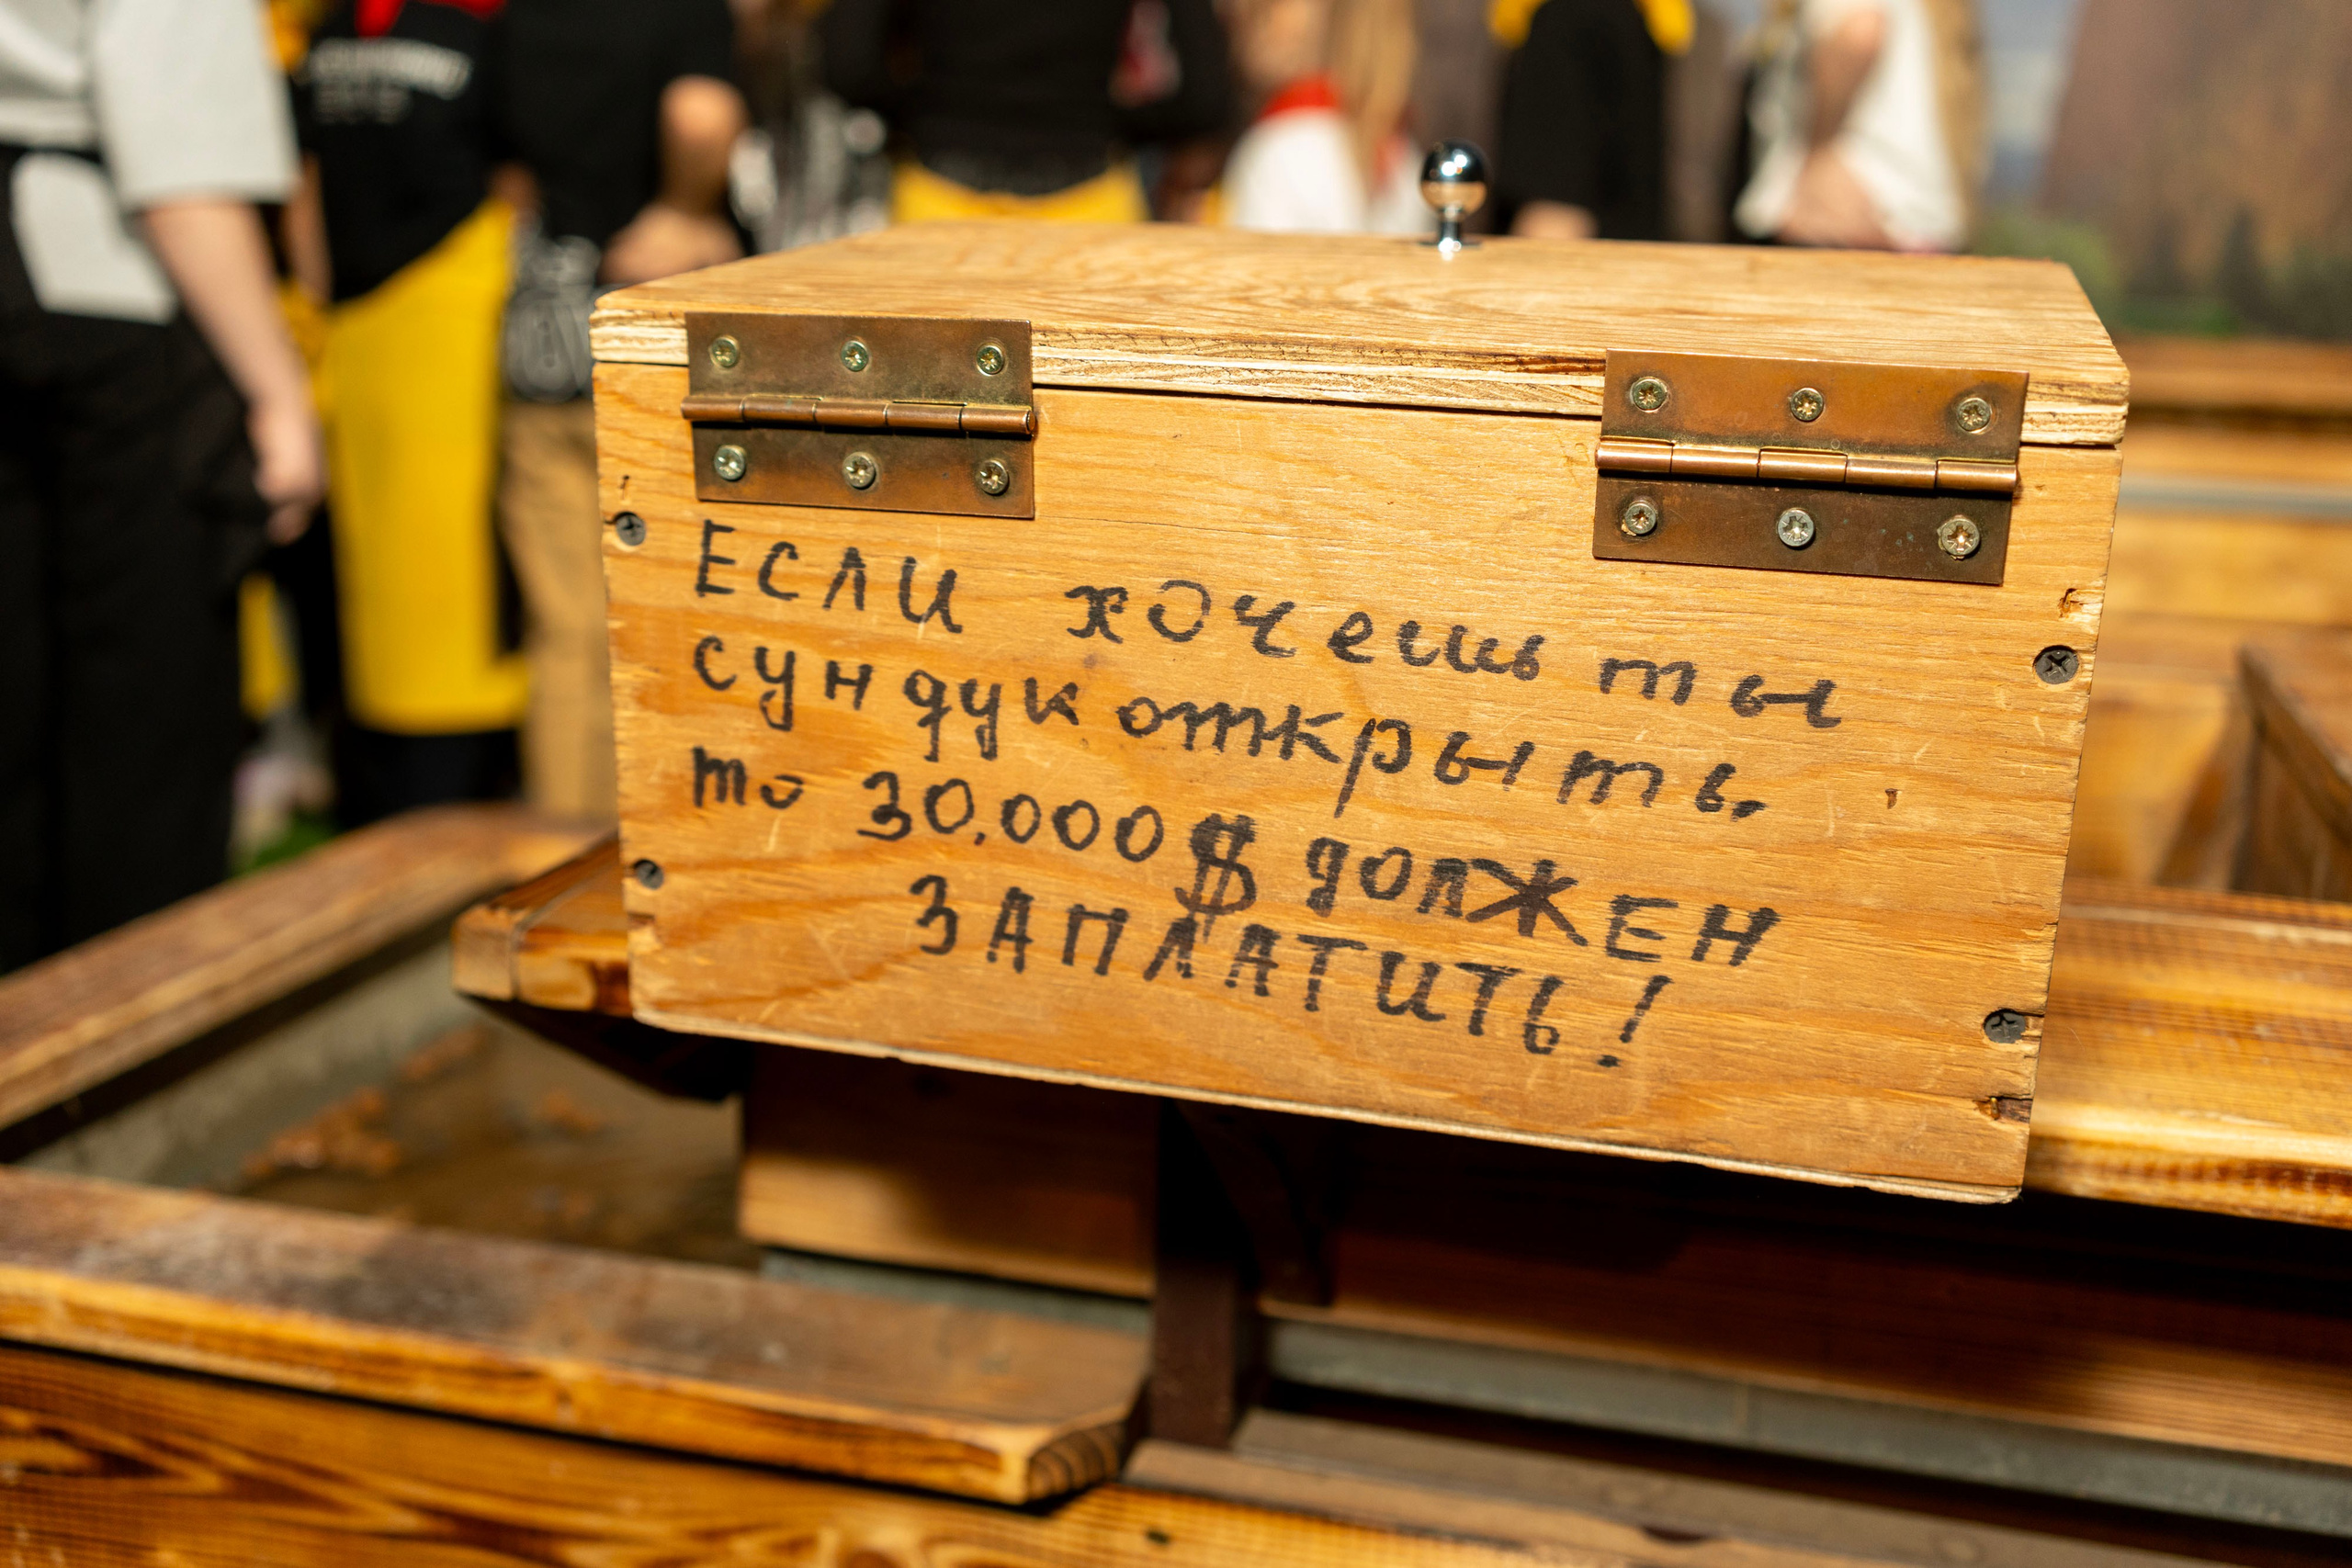 ЕСЛИ хочешь ты
сундук открыть,
то 30.000$ должЕН
ЗАПЛАТИТЬ!